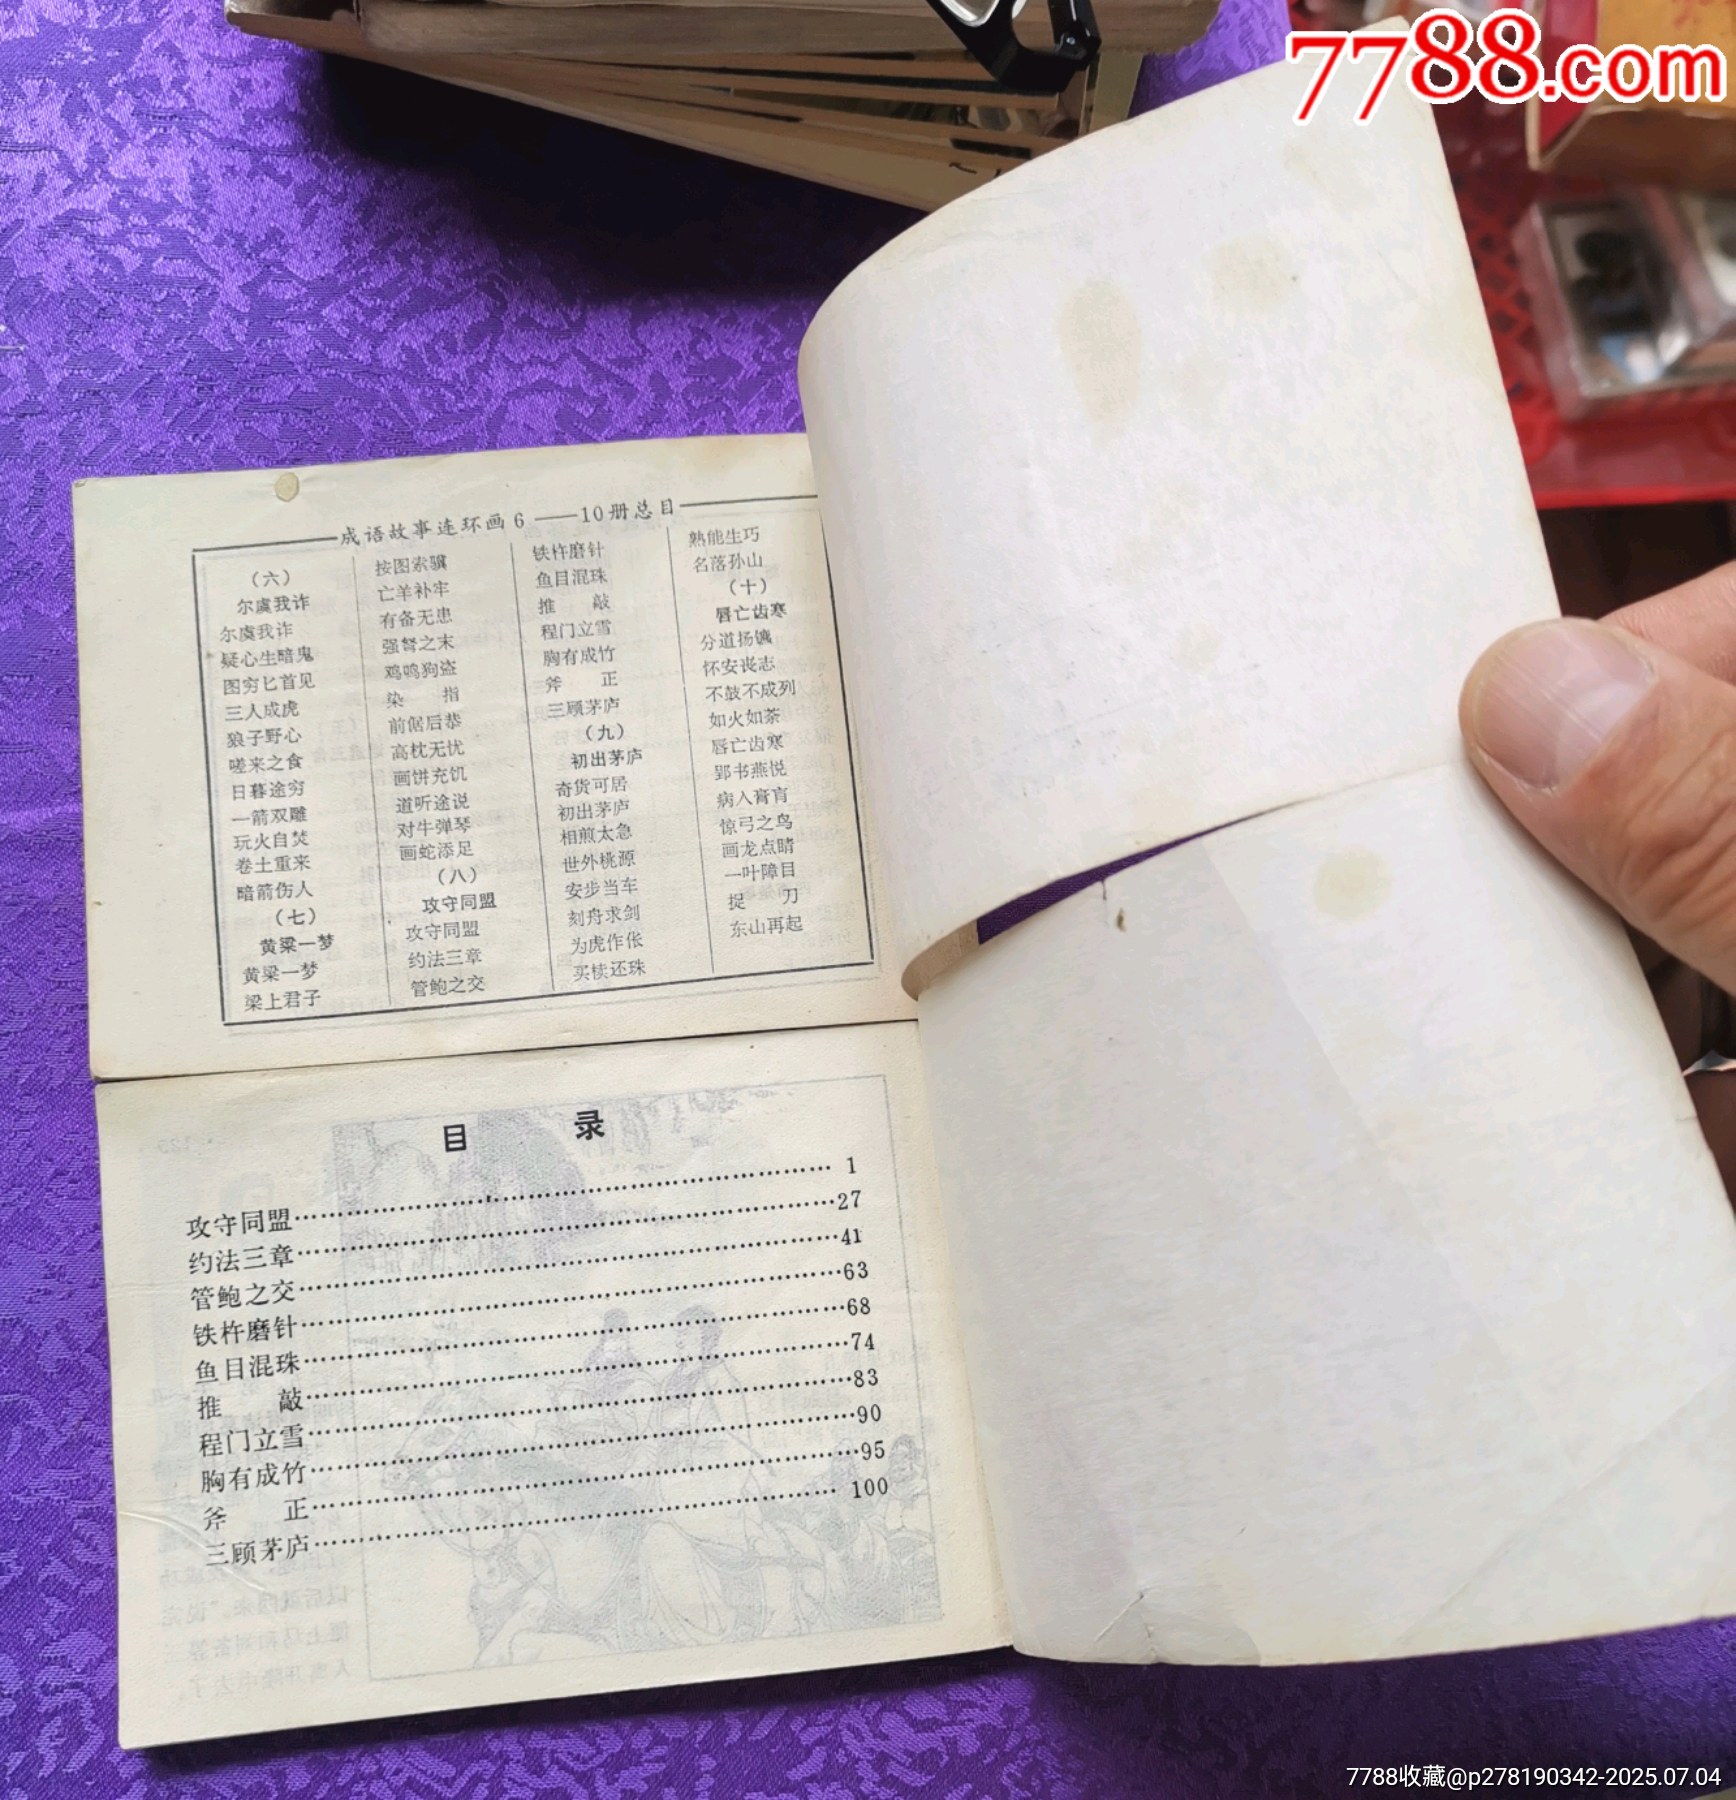 7788.com
成语故事连环画6——10册总目
（六）
尔虞我诈
尔虞我诈
疑心生暗鬼
图穷匕首见
三人成虎
狼子野心
嗟来之食
日暮途穷
一箭双雕
玩火自焚
卷土重来
暗箭伤人
（七）
黄粱一梦
黄粱一梦
梁上君子
按图索骥
亡羊补牢
有备无患
强弩之末
鸡鸣狗盗
染 指
前倨后恭
高枕无忧
画饼充饥
道听途说
对牛弹琴
画蛇添足
（八）
攻守同盟
攻守同盟
约法三章
管鲍之交
铁杵磨针
鱼目混珠
推 敲
程门立雪
胸有成竹
斧 正
三顾茅庐
（九）
初出茅庐
奇货可居
初出茅庐
相煎太急
世外桃源
安步当车
刻舟求剑
为虎作伥
买椟还珠
熟能生巧
名落孙山
（十）
唇亡齿寒
分道扬镳
怀安丧志
不鼓不成列
如火如荼
唇亡齿寒
郢书燕悦
病入膏肓
惊弓之鸟
画龙点睛
一叶障目
捉 刀
东山再起
目 录
攻守同盟……1
约法三章……27
管鲍之交……41
铁杵磨针……63
鱼目混珠……68
推 敲……74
程门立雪……83
胸有成竹……90
斧 正……95
三顾茅庐……100
7788收藏@p278190342-2025.07.04